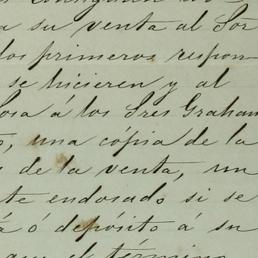 a su venta al Sor
los primeros respon
se hicieren y al
osa á los Sres Graham
, una cópia de la
de la venta, un
te endosado si se
á ó depósito á su
que el término